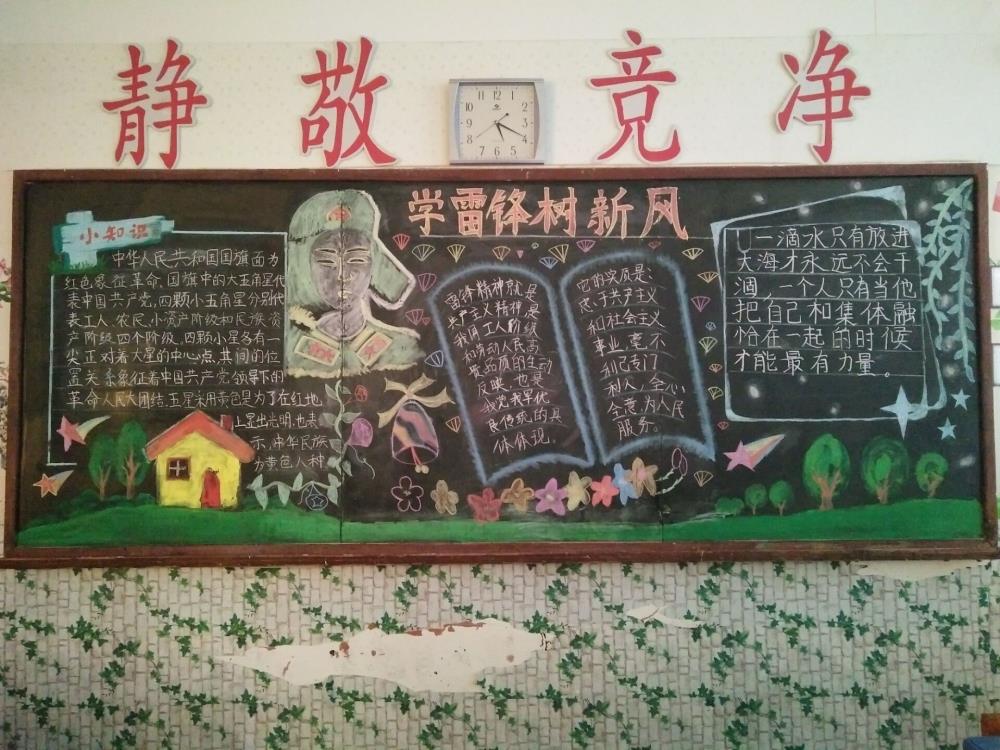 静 敬 竞 净
12
1
2
3
4
5
6
7
8
9
10
11
学雷锋树新风
小知识
中华人民共和国国旗面为
红色象征革命,国旗中的大五角星代
表中国共产党,四颗小五角星分别代
表工人、农民,小资产阶级和民族资
产阶级四个阶级,四颗小星各有一
尖正对着大星的中心点,其间的位
置关系象征着中国共产党领导下的
革命人民大团结.五星采用黄色是为了在红地
上显出光明,也表
示,中华民族
为黄色人种
雷锋精神就是
共产主义精神,是
我国工人阶级
和劳动人民高
贵品质的生动
反映,也是
我党我军优
良传统的具
体体现.
它的实质是:
忠于共产主义
和社会主义
事业,毫不
利己专门
利人,全心
全意为人民
服务。
一滴水只有放进
大海才永远不会干
涸,一个人只有当他
把自己和集体融
恰在一起的时候
才能最有力量。